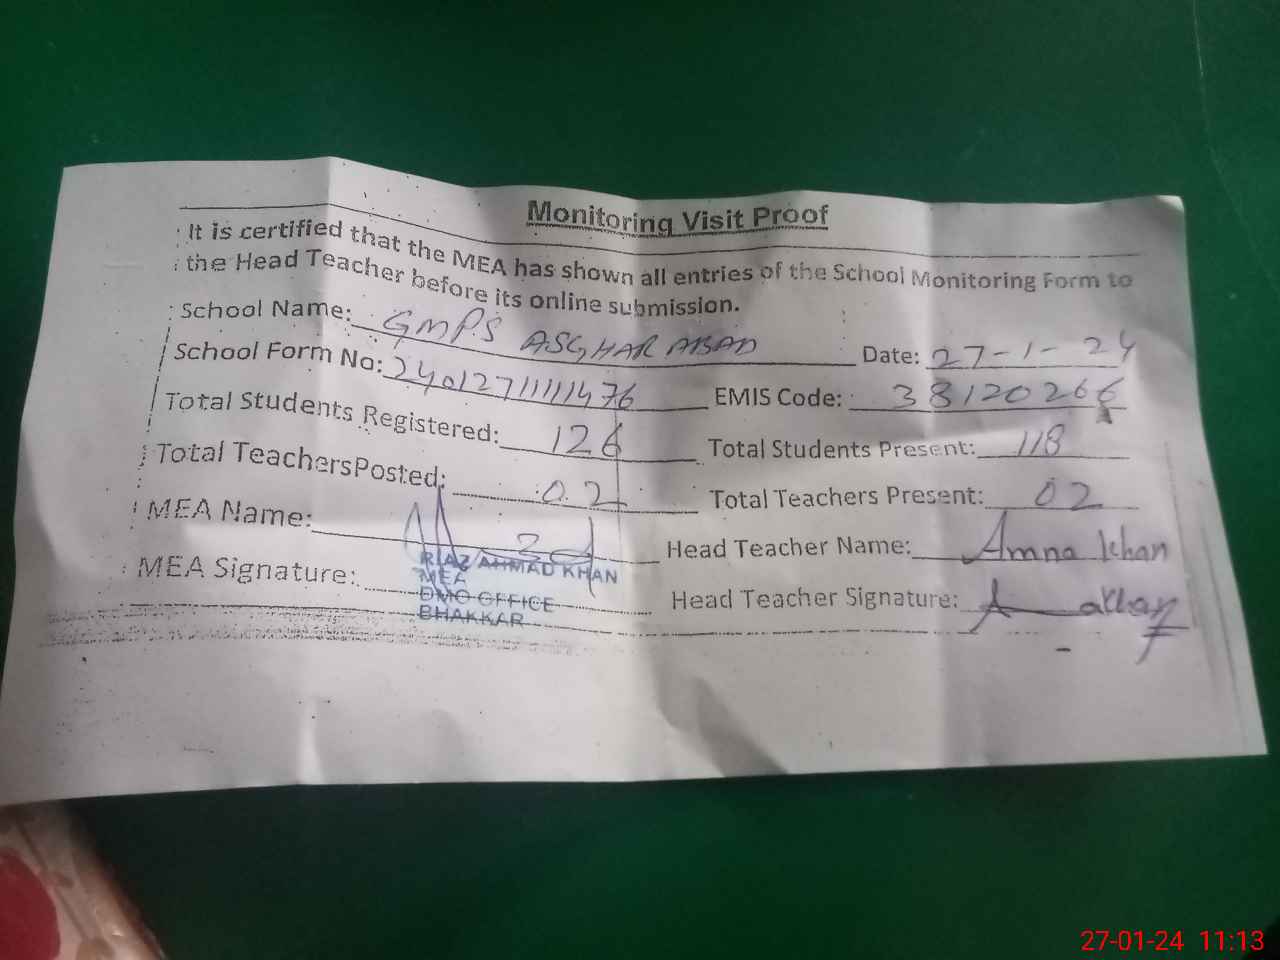 Monitoring Visit Proof
It is certified that the MEA has shown all entries of the School Monitoring Form to
the Head Teacher before its online submission.
School Name: GMPS ASGHAR ABAD Date: 27-1-24
School Form No: 2401271111476 EMIS Code: 38120266
Total Students Registered: 126 Total Students Present: 118
Total TeachersPosted: 02 Total Teachers Present: 02
MEA Name: Head Teacher Name: Amna khan
RIAZ AHMAD KHAN
MEA
DMO OFFICE
BHAKKAR
MEA Signature: Head Teacher Signature:
27-01-24 11:13